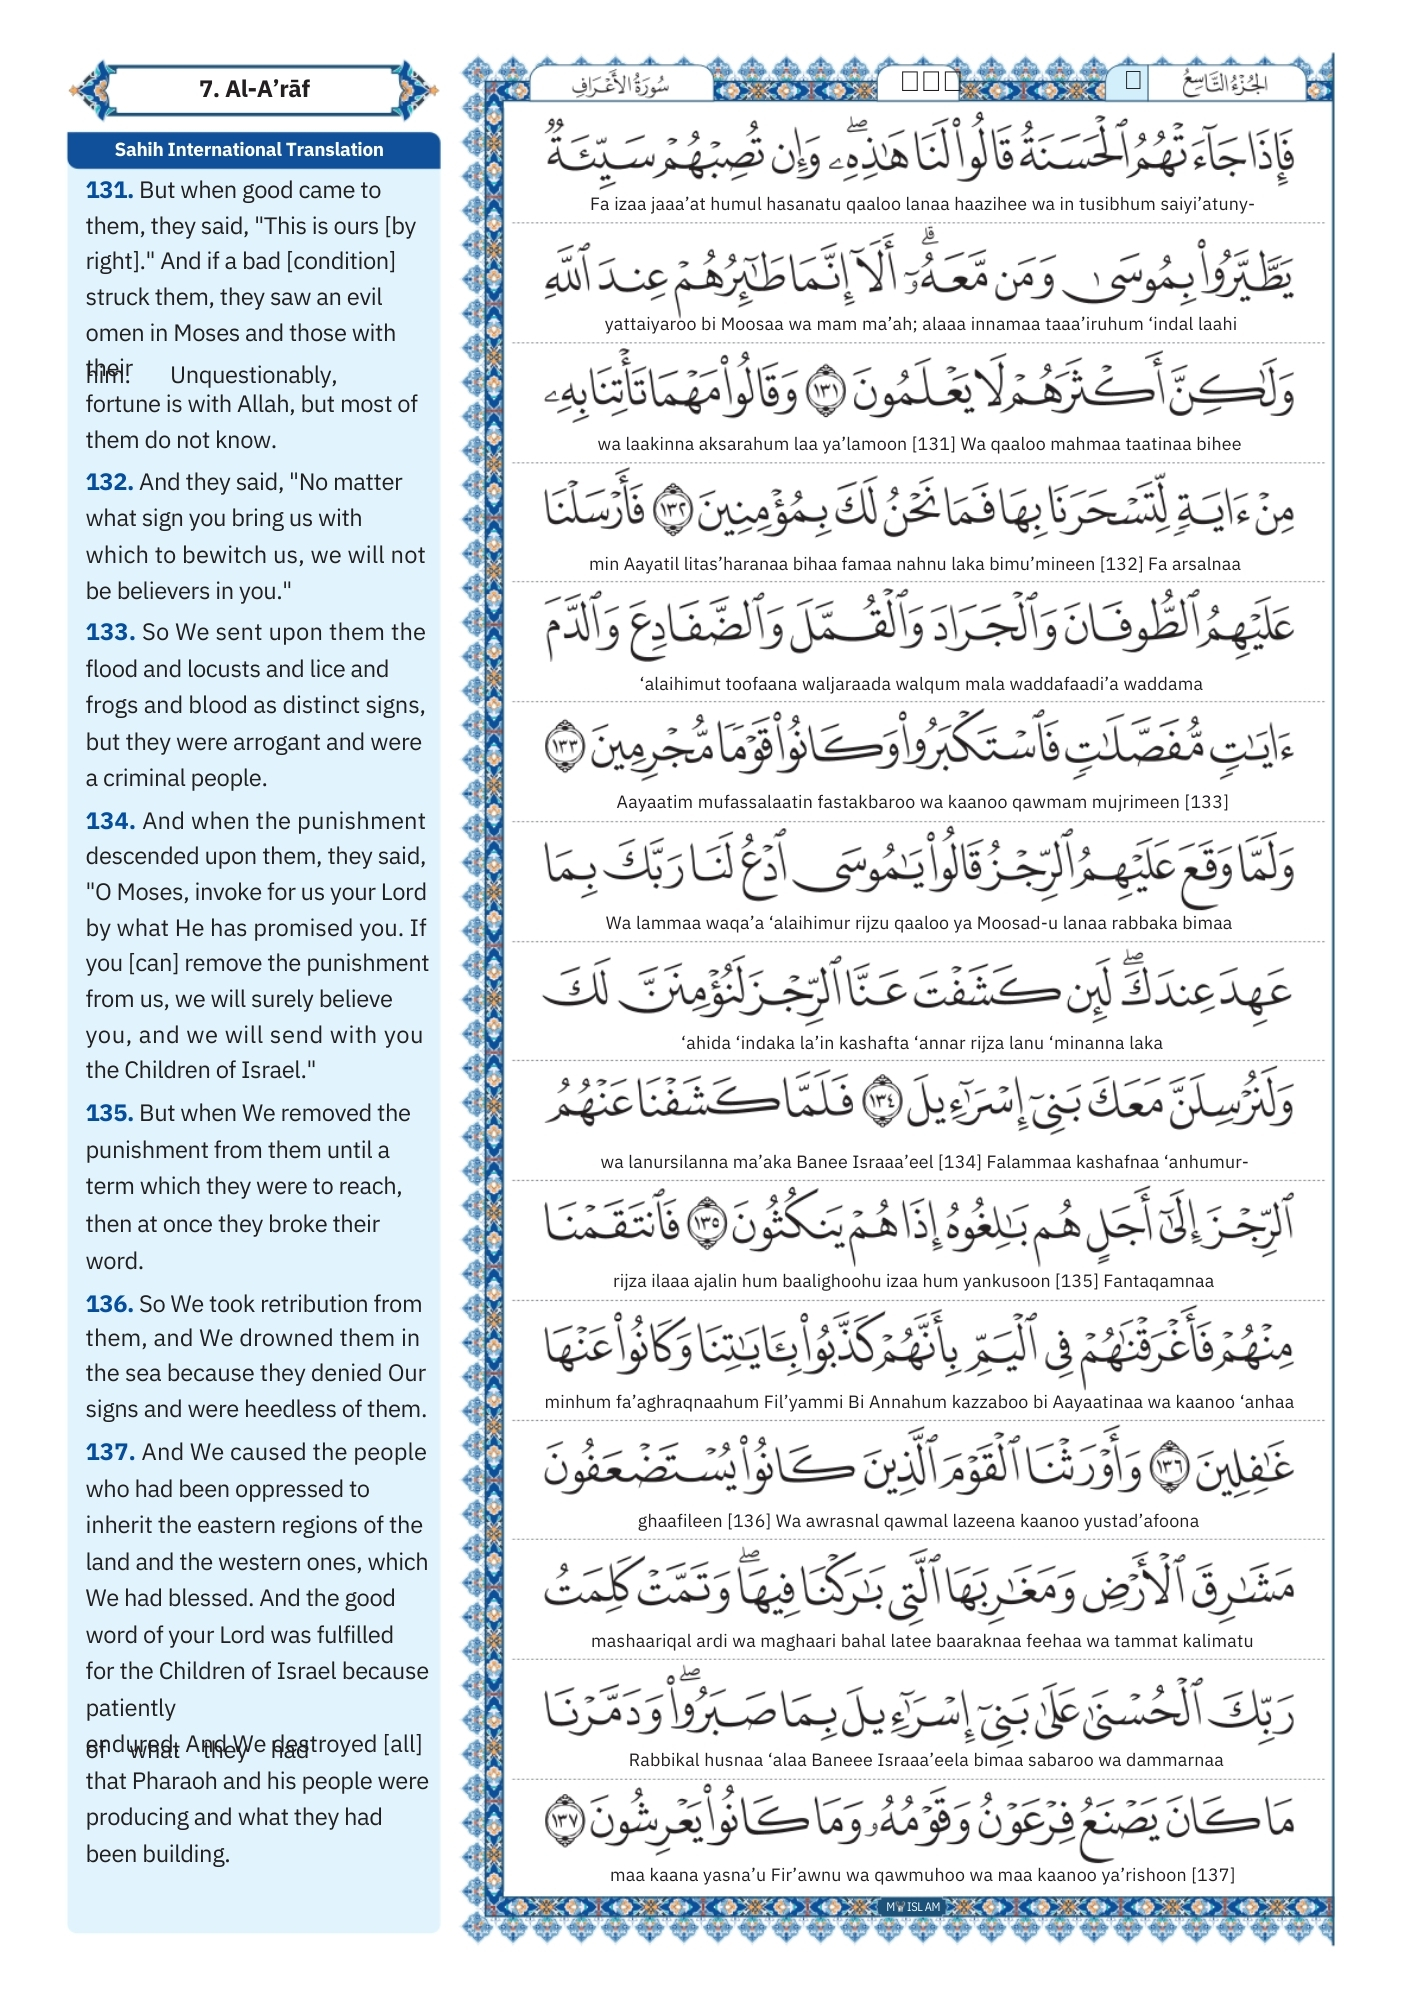 7. Al-A’rāf
Sahih International Translation
131. But when good came to
them, they said, "This is ours [by
right]." And if a bad [condition]
struck them, they saw an evil
omen in Moses and those with
him. Unquestionably,
their
fortune is with Allah, but most of
them do not know.
132. And they said, "No matter
what sign you bring us with
which to bewitch us, we will not
be believers in you."
133. So We sent upon them the
flood and locusts and lice and
frogs and blood as distinct signs,
but they were arrogant and were
a criminal people.
134. And when the punishment
descended upon them, they said,
"O Moses, invoke for us your Lord
by what He has promised you. If
you [can] remove the punishment
from us, we will surely believe
you, and we will send with you
the Children of Israel."
135. But when We removed the
punishment from them until a
term which they were to reach,
then at once they broke their
word.
136. So We took retribution from
them, and We drowned them in
the sea because they denied Our
signs and were heedless of them.
137. And We caused the people
who had been oppressed to
inherit the eastern regions of the
land and the western ones, which
We had blessed. And the good
word of your Lord was fulfilled
for the Children of Israel because
of what they had
patiently
endured. And We destroyed [all]
that Pharaoh and his people were
producing and what they had
been building.
الجُزْءُ التَّاسِعُ
سُورَةُ الأَعْرَافِ
فَإِذَا جَآءَتْهُمُ ٱلْحَسَنَةُ قَالُوا۟ لَنَا هَـٰذِهِۦ ۖ وَإِن تُصِبْهُمْ سَيِّئَةٌ
Fa izaa jaaa’at humul hasanatu qaaloo lanaa haazihee wa in tusibhum saiyi’atuny-
يَطَّيَّرُوا۟ بِمُوسَىٰ وَمَن مَّعَهُۥٓ ۗ أَلَآ إِنَّمَا طَـٰٓئِرُهُمْ عِندَ ٱللَّهِ
yattaiyaroo bi Moosaa wa mam ma’ah; alaaa innamaa taaa’iruhum ‘indal laahi
وَلَـٰكِنَّ أَكْثَرَهُمْ لَا يَعْلَمُونَ ١٣١ وَقَالُوا۟ مَهْمَا تَأْتِنَا بِهِۦ
wa laakinna aksarahum laa ya’lamoon [131] Wa qaaloo mahmaa taatinaa bihee
مِنْ ءَايَةٍ لِّتَسْحَرَنَا بِهَا فَمَا نَحْنُ لَكَ بِمُؤْمِنِينَ ١٣٢ فَأَرْسَلْنَا
min Aayatil litas’haranaa bihaa famaa nahnu laka bimu’mineen [132] Fa arsalnaa
عَلَيْهِمُ ٱلطُّوفَانَ وَٱلْجَرَادَ وَٱلْقُمَّلَ وَٱلضَّفَادِعَ وَٱلدَّمَ
‘alaihimut toofaana waljaraada walqum mala waddafaadi’a waddama
ءَايَـٰتٍ مُّفَصَّلَـٰتٍ فَٱسْتَكْبَرُوا۟ وَكَانُوا۟ قَوْمًا مُّجْرِمِينَ ١٣٣
Aayaatim mufassalaatin fastakbaroo wa kaanoo qawmam mujrimeen [133]
وَلَمَّا وَقَعَ عَلَيْهِمُ ٱلرِّجْزُ قَالُوا۟ يَـٰمُوسَى ٱدْعُ لَنَا رَبَّكَ بِمَا
Wa lammaa waqa’a ‘alaihimur rijzu qaaloo ya Moosad-u lanaa rabbaka bimaa
عَهِدَ عِندَكَ ۖ لَئِن كَشَفْتَ عَنَّا ٱلرِّجْزَ لَنُؤْمِنَنَّ لَكَ
‘ahida ‘indaka la’in kashafta ‘annar rijza lanu ‘minanna laka
وَلَنُرْسِلَنَّ مَعَكَ بَنِىٓ إِسْرَٰٓءِيلَ ١٣٤ فَلَمَّا كَشَفْنَا عَنْهُمُ
wa lanursilanna ma’aka Banee Israaa’eel [134] Falammaa kashafnaa ‘anhumur-
ٱلرِّجْزَ إِلَىٰٓ أَجَلٍ هُم بَـٰلِغُوهُ إِذَا هُمْ يَنكُثُونَ ١٣٥ فَٱنتَقَمْنَا
rijza ilaaa ajalin hum baalighoohu izaa hum yankusoon [135] Fantaqamnaa
مِنْهُمْ فَأَغْرَقْنَـٰهُمْ فِى ٱلْيَمِّ بِأَنَّهُمْ كَذَّبُوا۟ بِـَٔايَـٰتِنَا وَكَانُوا۟ عَنْهَا
minhum fa’aghraqnaahum Fil’yammi Bi Annahum kazzaboo bi Aayaatinaa wa kaanoo ‘anhaa
غَـٰفِلِينَ ١٣٦ وَأَوْرَثْنَا ٱلْقَوْمَ ٱلَّذِينَ كَانُوا۟ يُسْتَضْعَفُونَ
ghaafileen [136] Wa awrasnal qawmal lazeena kaanoo yustad’afoona
مَشَـٰرِقَ ٱلْأَرْضِ وَمَغَـٰرِبَهَا ٱلَّتِى بَـٰرَكْنَا فِيهَا ۖ وَتَمَّتْ كَلِمَتُ
mashaariqal ardi wa maghaari bahal latee baaraknaa feehaa wa tammat kalimatu
رَبِّكَ ٱلْحُسْنَىٰ عَلَىٰ بَنِىٓ إِسْرَٰٓءِيلَ بِمَا صَبَرُوا۟ ۖ وَدَمَّرْنَا
Rabbikal husnaa ‘alaa Baneee Israaa’eela bimaa sabaroo wa dammarnaa
مَا كَانَ يَصْنَعُ فِرْعَوْنُ وَقَوْمُهُۥ وَمَا كَانُوا۟ يَعْرِشُونَ ١٣٧
maa kaana yasna’u Fir’awnu wa qawmuhoo wa maa kaanoo ya’rishoon [137]
MY ISLAM